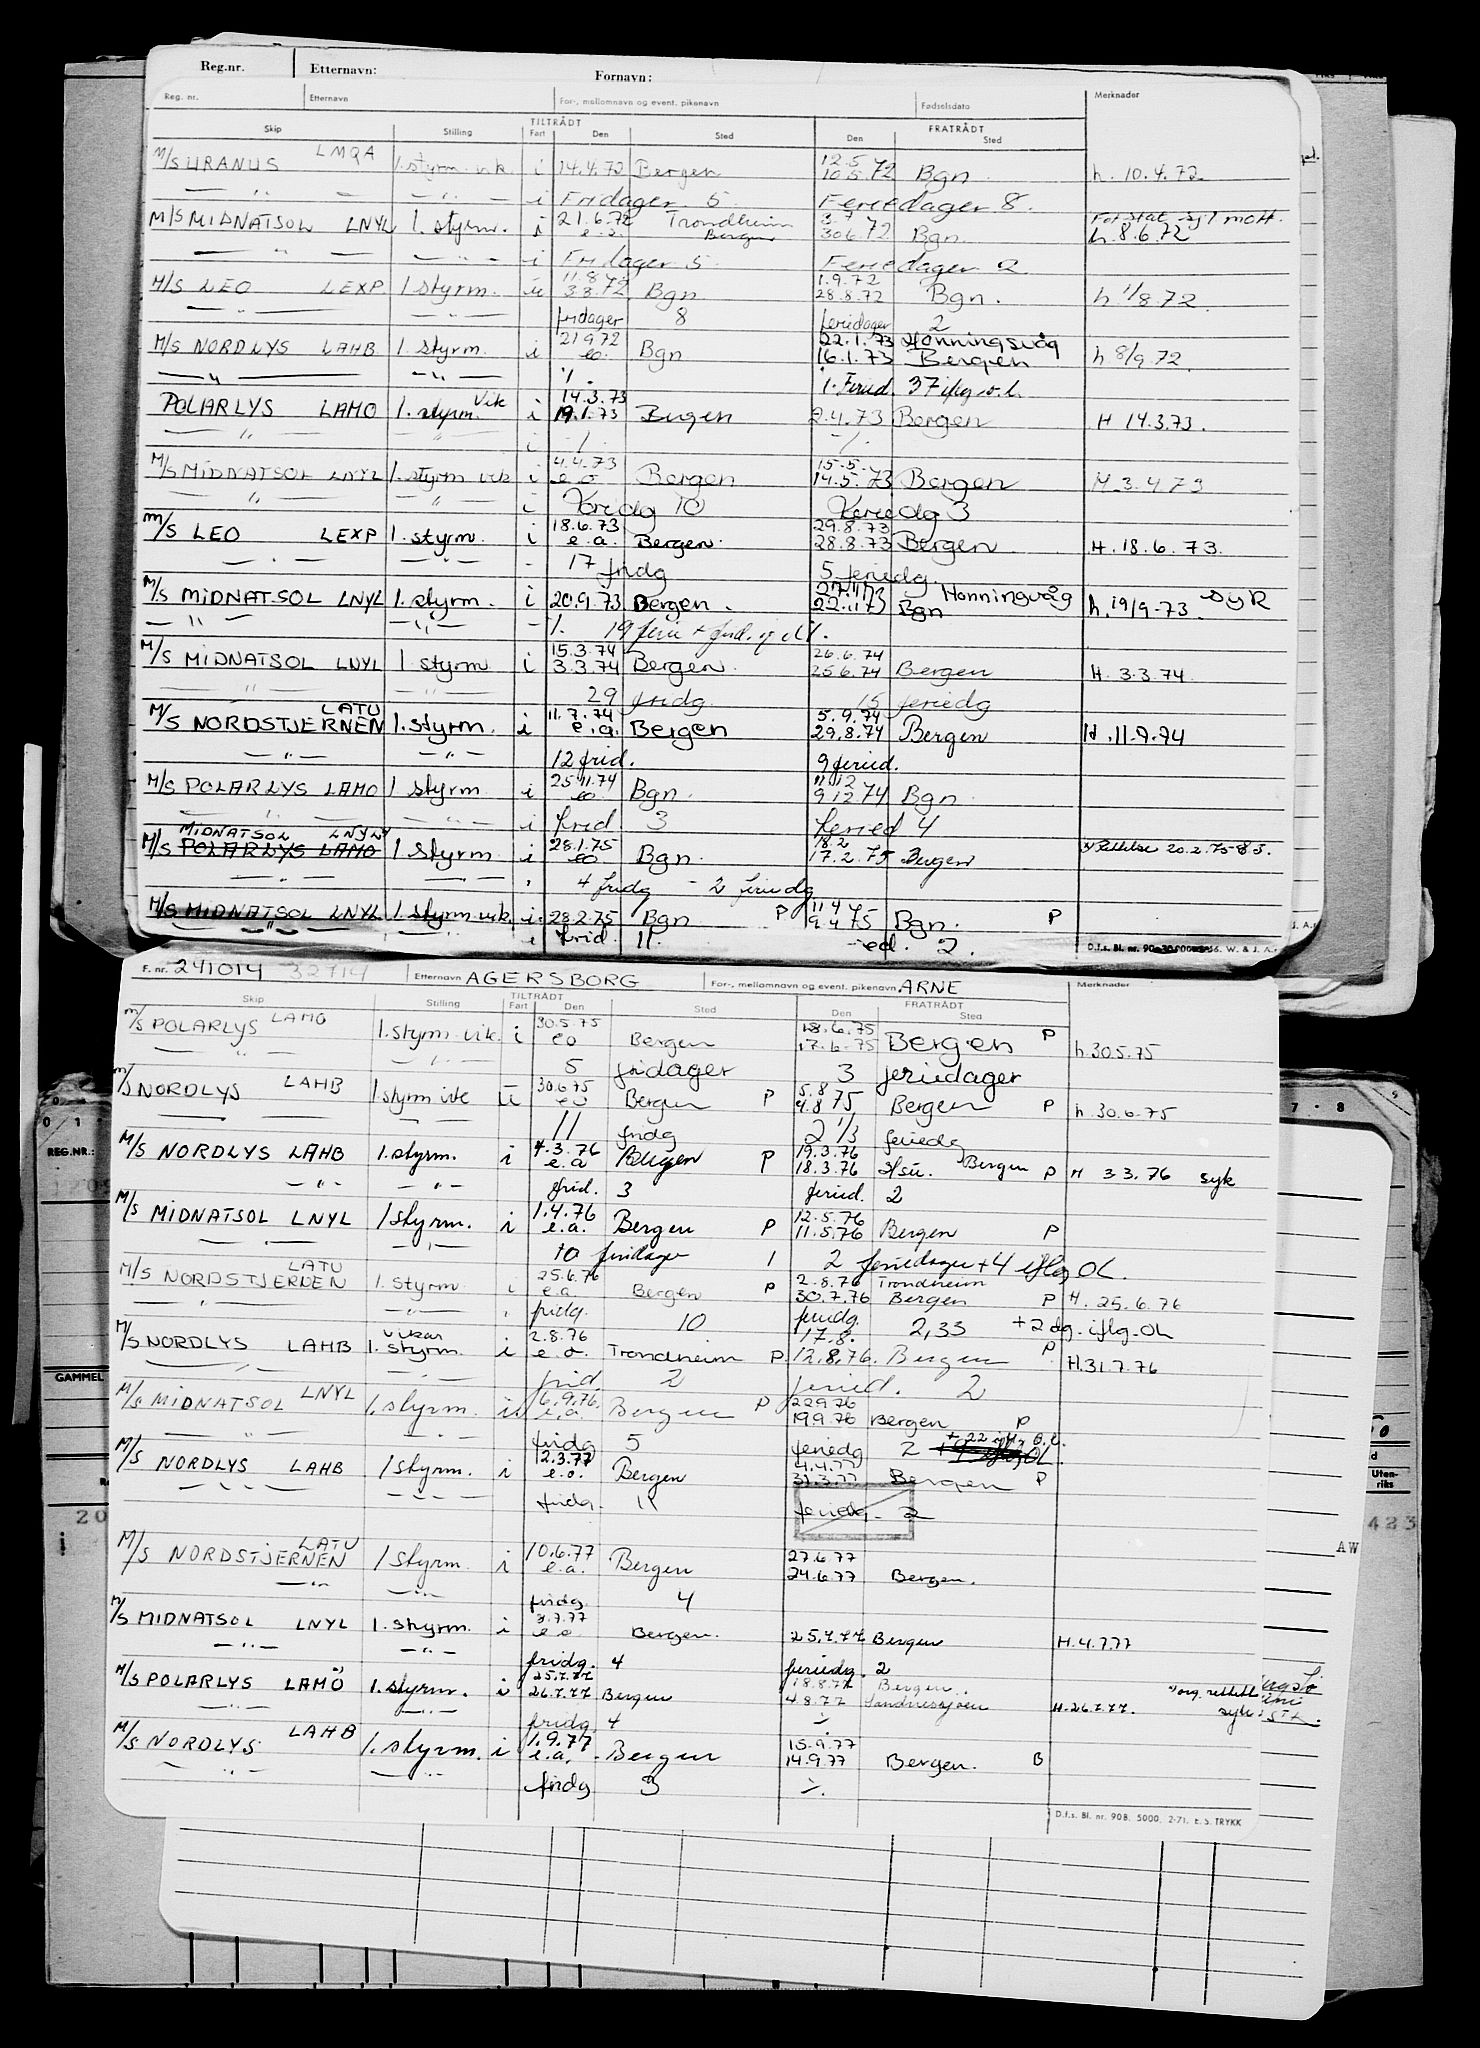 Reg.nr. Etternavn: Fornavn:
Reg. nr. Etternavn For-, mellomnavn og event. pikenavn Fødselsdato Merknader
TILTRÅDT FRATRÅDT
Skip Stilling Fart Den Sted Den Sted
M/S URANUS LMQA 1. styrm. vik. i 14.4.72 Bergen 12.5 10.5.72 Bgn. h. 10.4.72
— " — — " — i Fridager 5 Feriedager 8.
M/S MIDNATSOL LNYL 1. styrm. i 21.6.72 Trondheim 30.6.72 Bgn. h. 8.6.72
— " — — " — i Fridager 5 Feriedager 2
M/S LEO LEXP 1 styrm. u 11.8.72 3.8.72 Bgn 1.9.72 28.8.72 Bgn. h 1/8.72.
— " — — " — fridager 8 feriedager 2
M/S NORDLYS LAHB 1. styrm. i 21.9.72 eo. Bgn 22.1.73 Honningsvåg 16.1.73 Bergen h 8/9.72.
— " — — " — 37
POLARLYS LAMO 1. styrm. vik i 14.3.73 19.1.73 Bergen 2.4.73 Bergen H 14.3.73.
— " — " i -/- -/-
M/S MIDNATSOL LNYL 1. styrm vik i 4.4.73 e.o Bergen 15.5. 14.5.73 Bergen H 3.4 73
— " — " i Fridg 10 Feriedg 3
M/S LEO LEXP 1. styrm. i 18.6.73 e.a. Bergen. 29.8.73 28.8.73 Bergen H. 18.6.73.
— " — — " — - 17 fridg 5 feriedg
M/S MIDNATSOL LNYL 1. styrm. i 20.9.73 Bergen. 27.11.73 Honningvåg 22.11.73 Bgn h. 19/9-73. syk
— " — — " — 19 ferie + frid.
M/S MIDNATSOL LNYL 1 styrm i 15.3.74 3.3.74 Bergen. 26.6.74 25.6.74 Bergen H. 3.3.74.
— " — — " — 29 fridg. 15 feriedg
M/S NORDSTJERNEN LATU 1. styrm. i 11.7.74 e.a. Bergen 5.9.74 29.8.74 Bergen H. 11.7.74
— " — — " — 12 frid. 9 feried.
M/S POLARLYS LAMO 1 styrm i 25.11.74 eo Bgn. 11.12 9.12.74 Bgn
— " — i Frid 3 Feried 4
MIDNATSOL LNYL
M/S POLARLYS LAMO 1 styrm. i 28.1.75 eo Bgn. 18.2 17.2.75 Bergen Rettelse 20.2.75
— " — — " — 4 fridg - 2 feriedg
M/S MIDNATSOL LNYL 1 styrm vik. i. 28.2.75 Bgn P 11.4 9.4.75 Bgn. P
— " — i Frid. 11. ied. 2.
F. nr. 241014 32714 Etternavn AGERSBORG For-, mellomnavn og event. pikenavn ARNE Merknader
TILTRÅDT FRATRÅDT
Skip Stilling Fart Den Sted Den Sted
M/S POLARLYS LAMO 1. styrm vik. i 30.5.75 eo Bergen 18.6.75 17.6.75 Bergen P h. 30.5.75
— " — — " — 5 fridager 3 feriedager
M/S NORDLYS LAHB 1 styrm vik i 30.6.75 eo Bergen P 5.8 4.8.75 Bergen P h. 30.6.75
— " — 11 fridg 2 1/3 feriedg
M/S NORDLYS LAHB 1. styrm. i 4.3.76 e.a Bergen P 19.3.76 18.3.76 Bergen P H 3.3.76 syk
— " — — " — frid. 3 feried. 2
M/S MIDNATSOL LNYL 1 styrm. i 1.4.76 e.a. Bergen P 12.5.76 11.5.76 Bergen P
— " — — " — 10 fridager 1 2 feriedager + 4 iflg OL.
M/S NORDSTJERNEN LATU 1. styrm. i 25.6.76 e.a. Bergen P 2.8.76 Trondheim 30.7.76 Bergen P H. 25.6.76
— " — — " — fridg. 10 2,33 +2 dg. iflg. OL
M/S NORDLYS LAHB vikar 1. styrm. i 2.8.76 e.o. Trondheim P. 17.8. 12.8.76. Bergen P H. 31.7.76
— " — frid 2 feried. 2
M/S MIDNATSOL LNYL 1. styrm. i 6.9.76. e.a. Bergen P 22.9.76 19.9.76 Bergen P
— " — — " — fridg 5 feriedg 2
M/S NORDLYS LAHB 1 styrm. i 12.3.77 e.o. Bergen 4.4.77 31.3.77 Bergen P
— " — — " — fridg. 11 feriedg. 2
M/S NORDSTJERNEN LATU 1 styrm. i 10.6.77 e.a. Bergen 27.6.77 24.6.77 Bergen.
— " — — " — fridg. 4
M/S MIDNATSOL LNYL 1. styrm. i 3.7.77 e.o. Bergen. 25.7.77 Bergen H. 4.7.77
— " — — " — fridg. 4 feriedg. 2
M/S POLARLYS LAMO 1. styrm. i 25.7.77 26.7.77 Bergen 18.8.77 Bergen. 4.8.77 Sandnessjøen H. 26.7.77. syk
— " — — " — fridg. 4
M/S NORDLYS LAHB 1. styrm. i 1.9.77 e.a. Bergen 15.9.77 14.9.77 Bergen. B
— " — — " — fridg 3
D.f.s. Bl. nr. 90B. 5000. 2-71. E. S. TRYKK
REG.NR.:
GAMMEL
Utenriks
423
AW